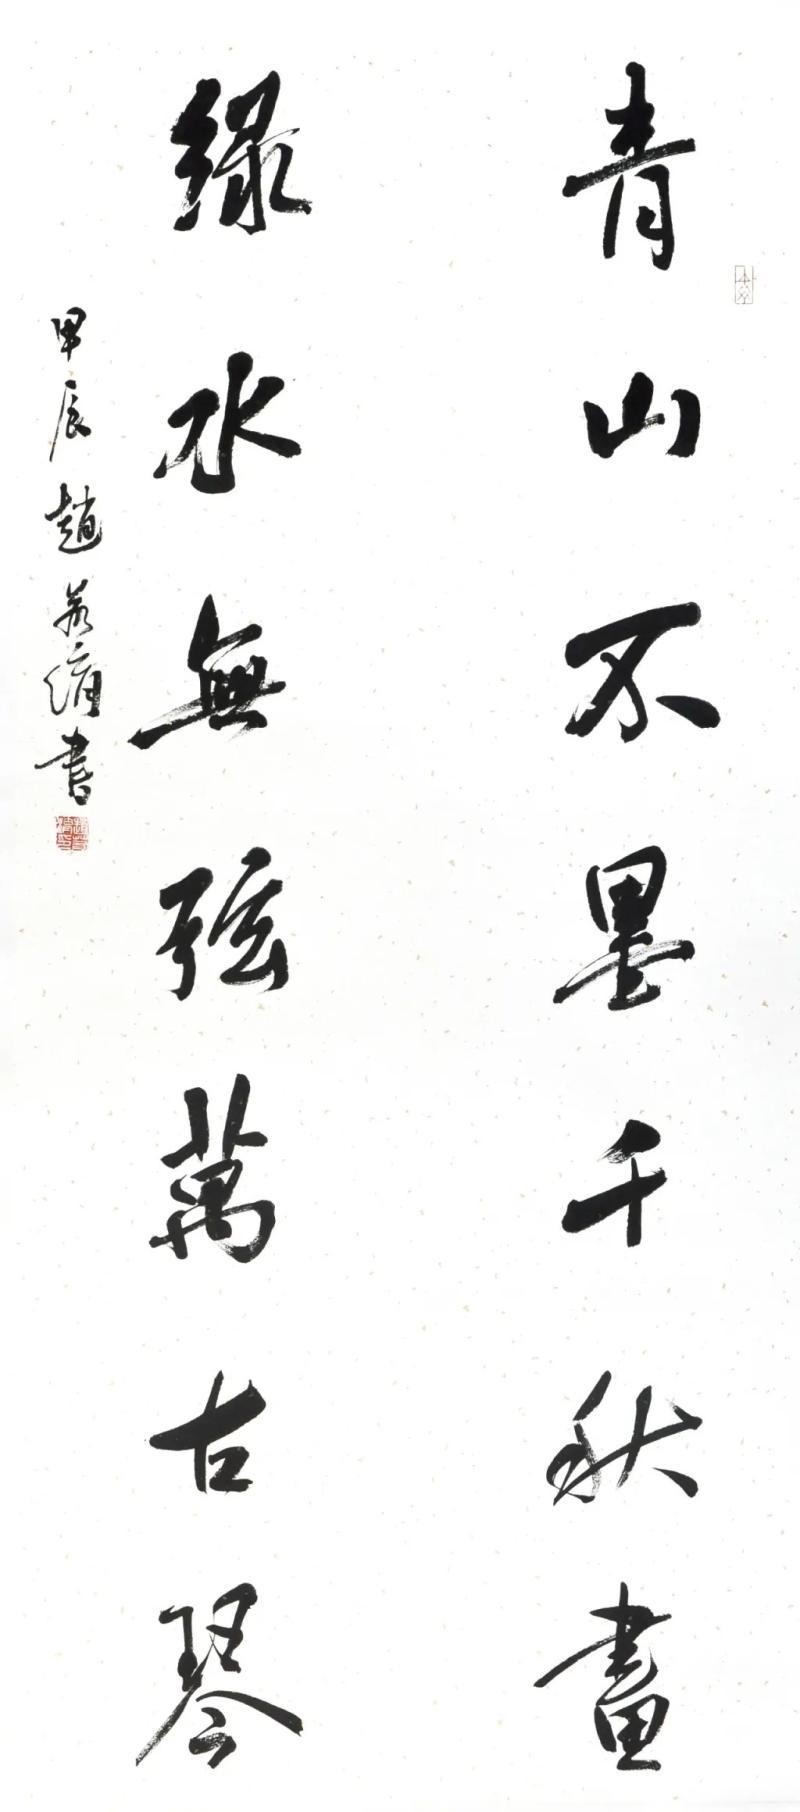 青山不墨千秋畫
綠水無弦萬古琴
甲辰趙若濱書